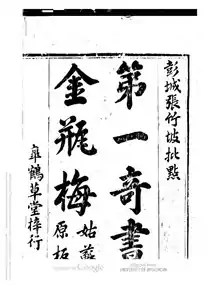 彭城張竹坡批點
第一奇書
金瓶梅
姑蘇原板
臯鶴草堂梓行
Google